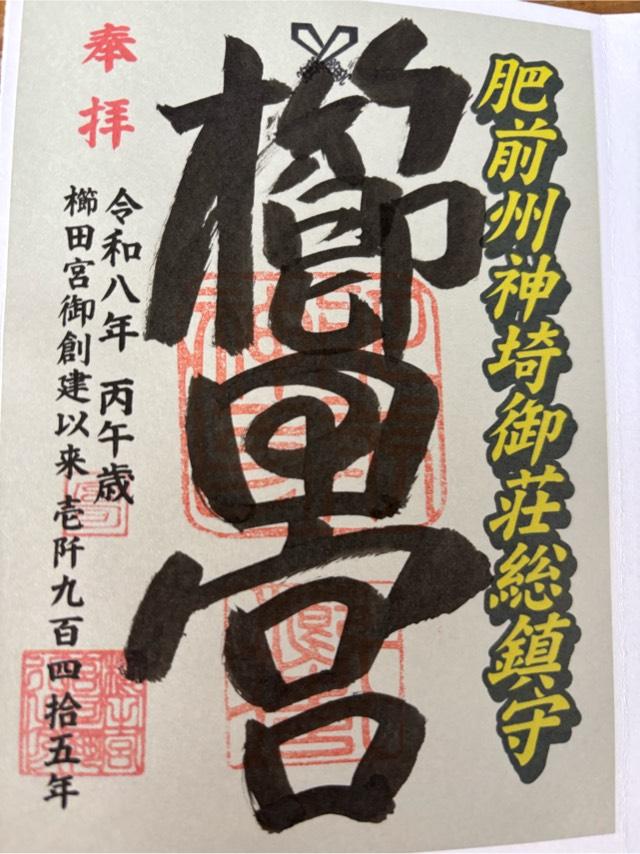 肥前州神埼御荘総鎮守
奉拝
櫛田宮
令和八年 丙午歳
櫛田宮御創建以来 壱阡九百四拾五年